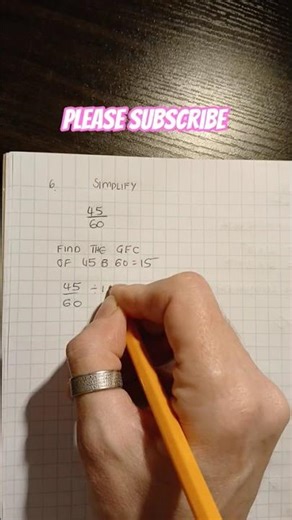 PLEASE SUBSCRIBE
6. SIMPLIFY
45
60
FIND THE GFC
OF 45 & 60 = 15
45 ÷ 1
60